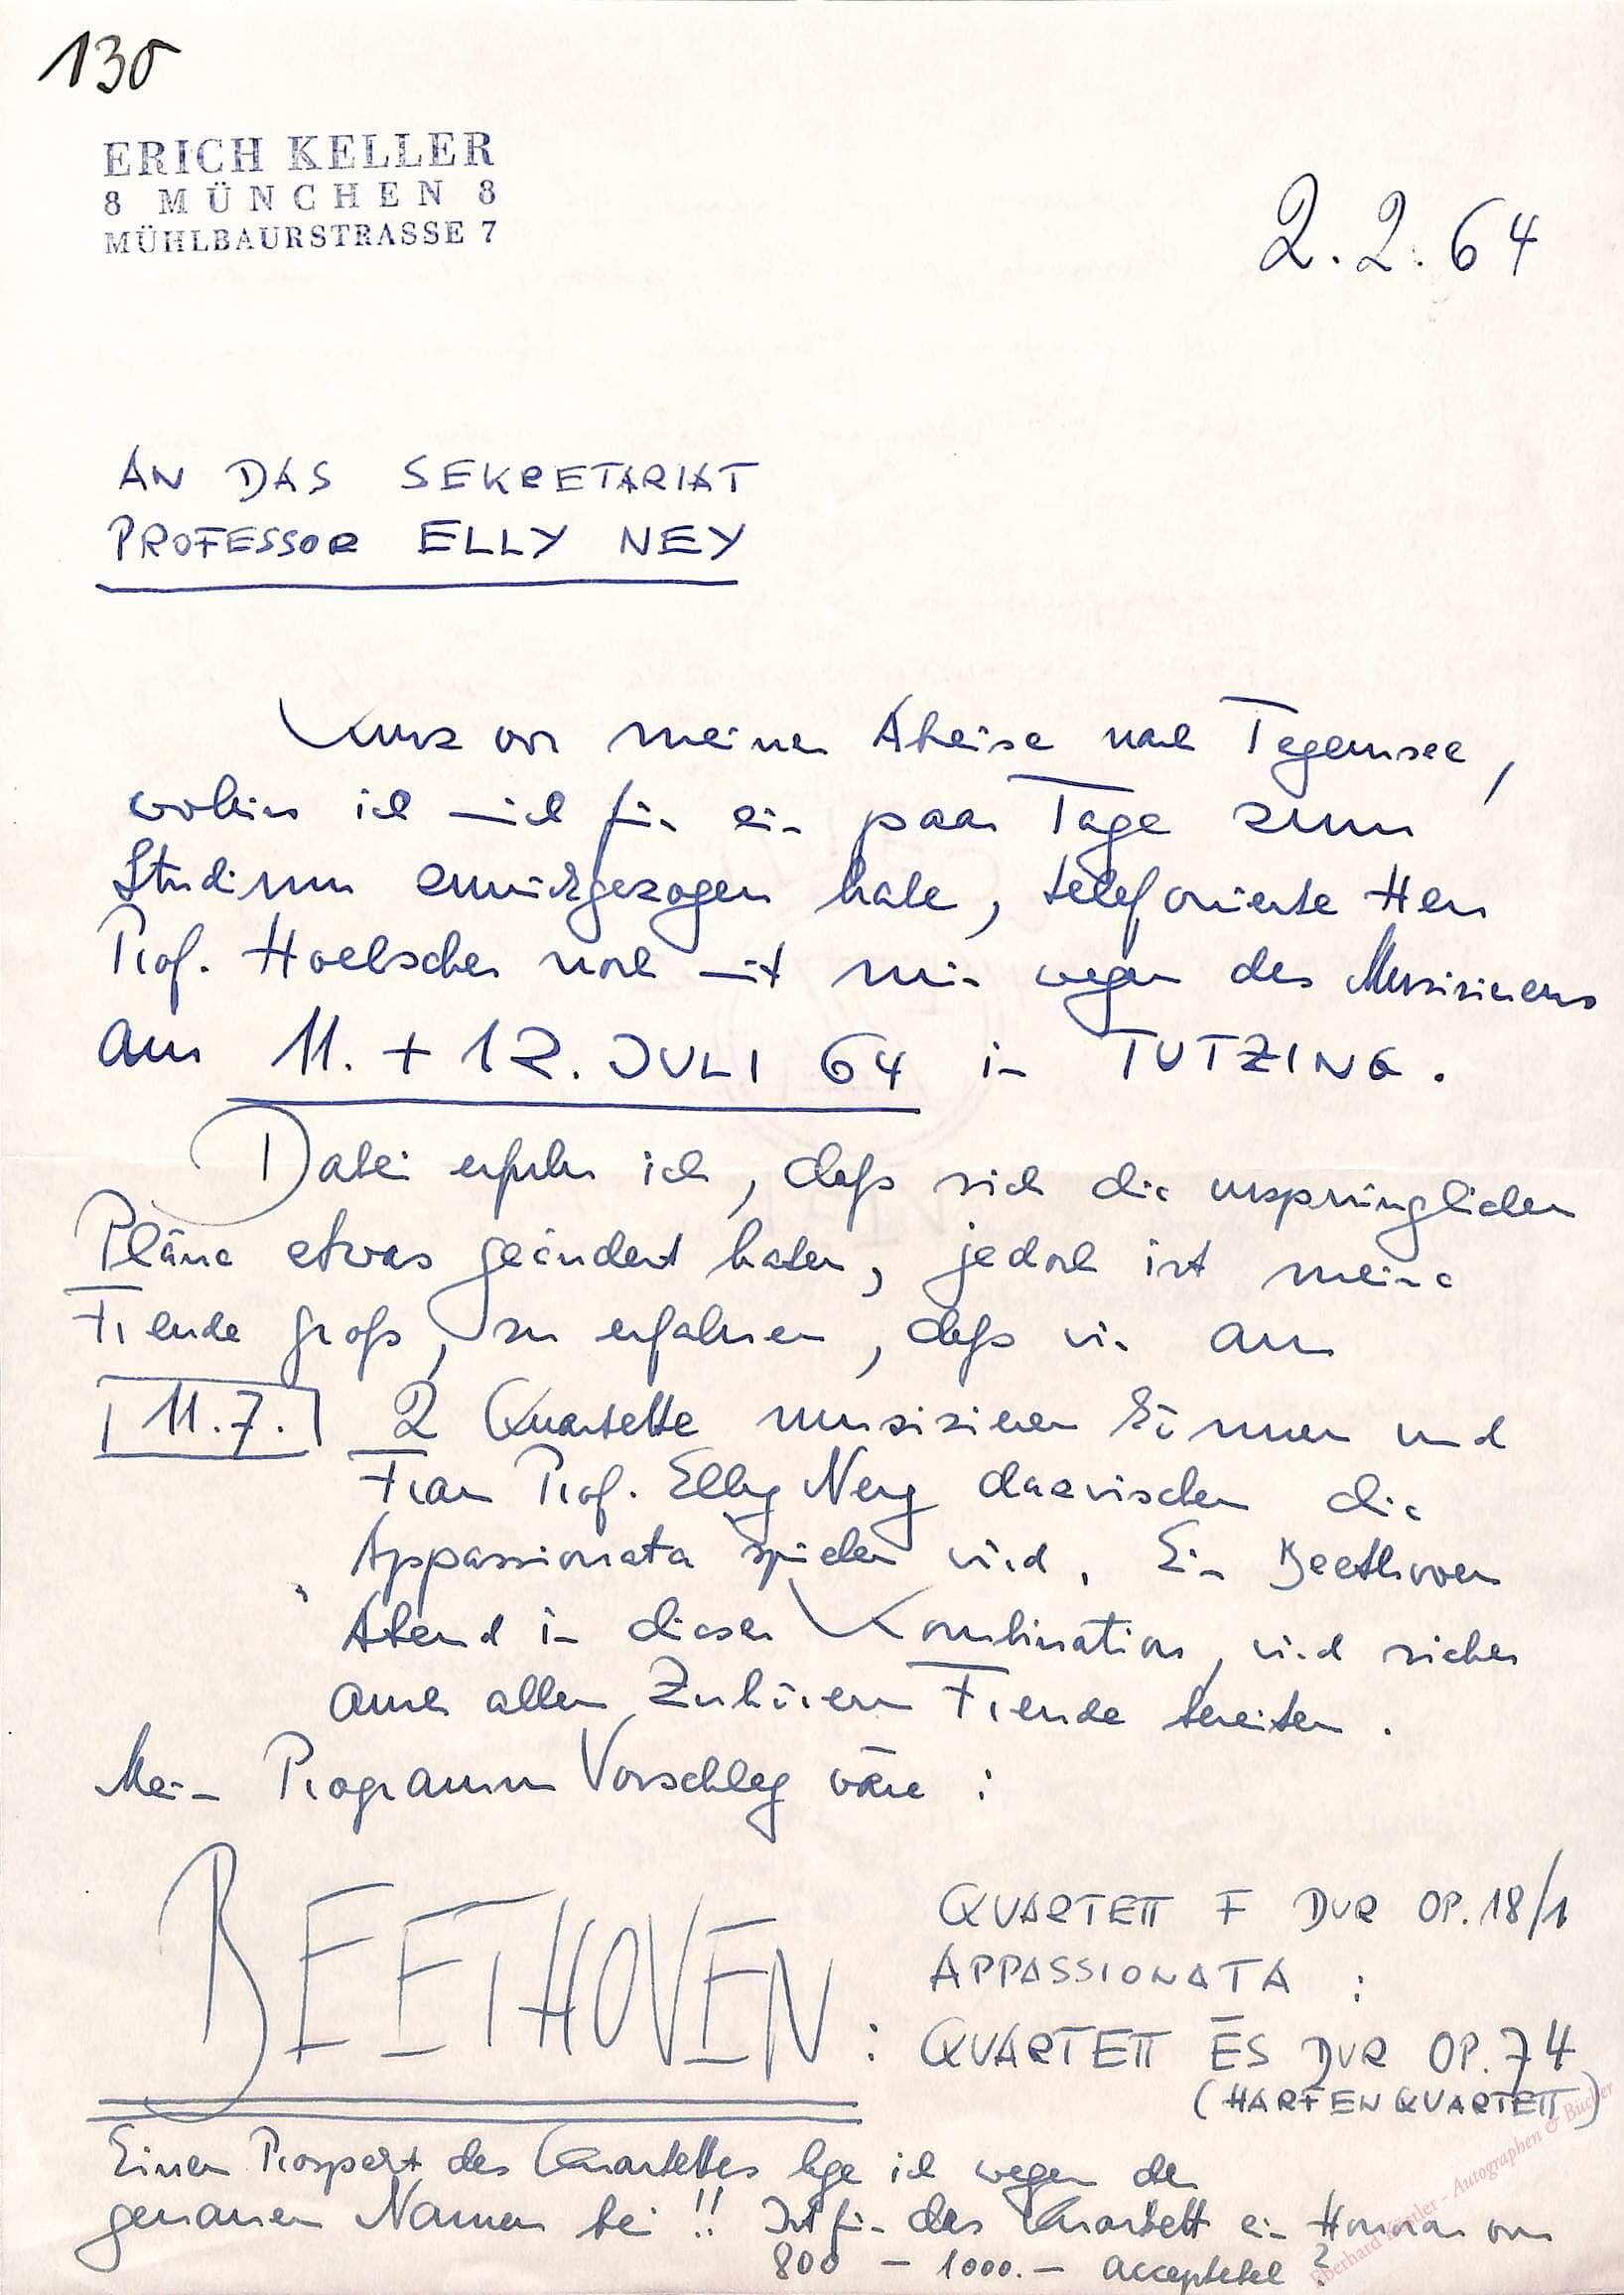 130
ERICH KELLER
8 MÜNCHEN 8
MÜHLBAURSTRASSE 7
2.2.64
AN DAS SEKRETARIAT
PROFESSOR ELLY NEY
Kurz vor meiner Abreise nach Tegernsee,
wohin ich mich für ein paar Tage zum
Studium zurückgezogen habe, telefonierte Herr
Prof. Hoelscher noch mit mir wegen des Musizierens
am 11. + 12. JULI 64 in TUTZING.
Dabei erfuhr ich, daß sich die ursprünglichen
Pläne etwas geändert haben, jedoch ist meine
Freude groß, zu erfahren, daß wir am
11.7. 2 Quartette musizieren können und
Frau Prof. Elly Ney dazwischen die
Appassionata spielen wird. Ein Beethoven
Abend in dieser Kombination, wird sicher
auch allen Zuhörern Freude bereiten.
Mein Programm Vorschlag wäre:
BEETHOVEN: QUARTETT F DUR OP. 18/1
APPASSIONATA :
QUARTETT ES DUR OP. 74
(HARFENQUARTETT)
Einen Prospekt des Quartettes lege ich wegen der
genauen Namen bei!! Ist für das Quartett ein Honorar von
800 – 1000.– acceptabel?
Eberhard Köstler - Autographen & Bücher